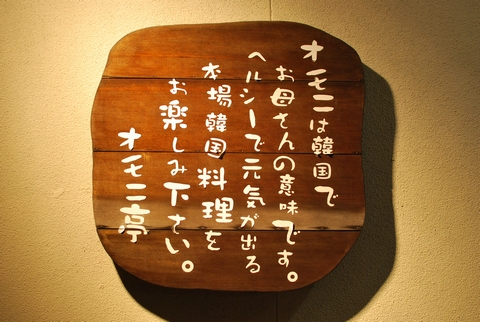 オモニは韓国で
お母さんの意味です。
ヘルシーで元気が出る
本場韓国料理を
お楽しみ下さい。
オモニ亭